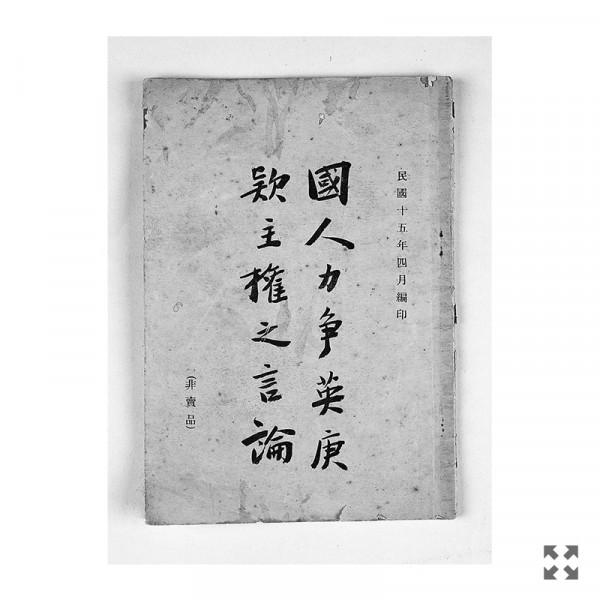 民國十五年四月編印
國人力争英庚
款主權之言論
(非賣品)